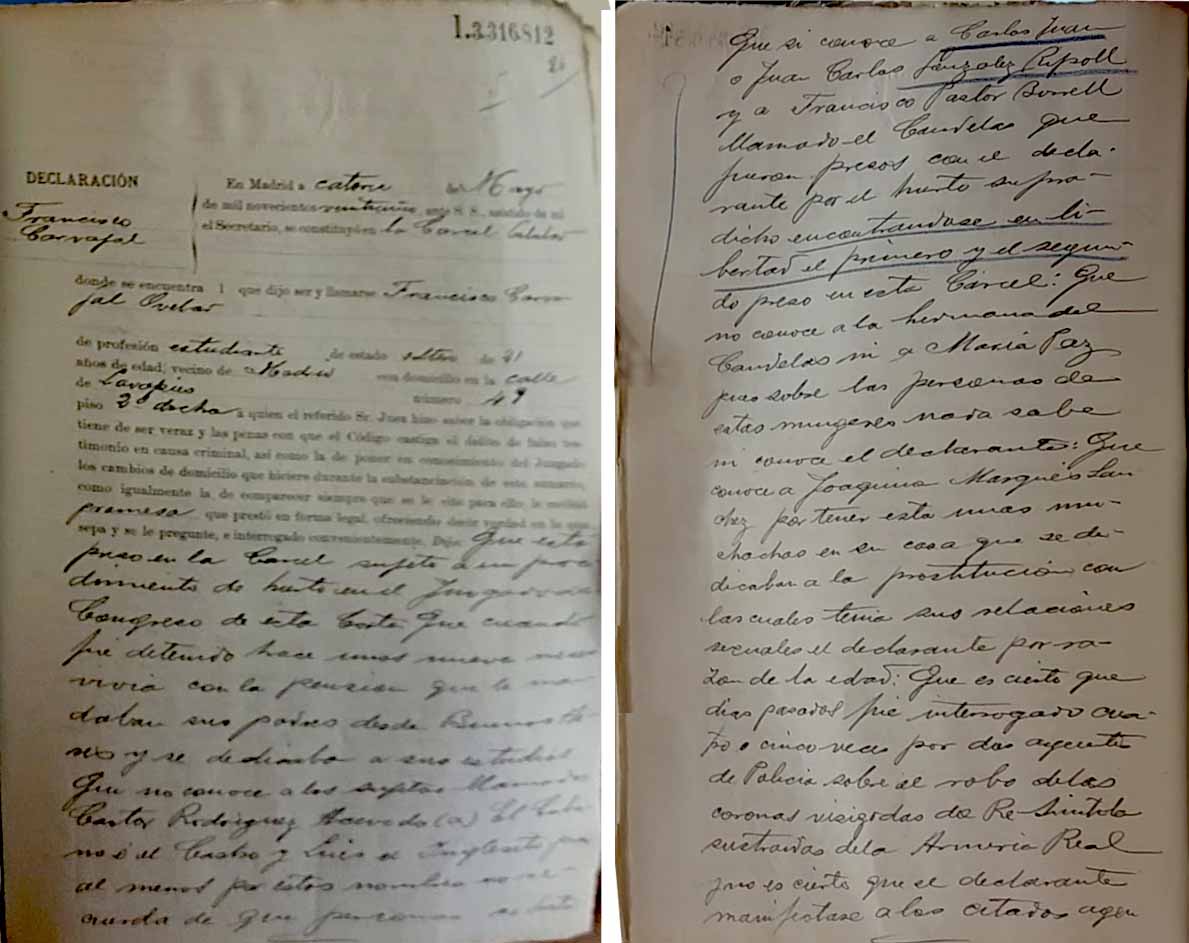 1.3.316.812
DECLARACIÓN
Francisco
Carvajal
En Madrid a catorce de Mayo
de mil novecientos veintiuno, ante S. S., asistido de mí
el Secretario, se constituyó en la Carcel Celular
donde se encuentra l que dijo ser y llamarse Francisco Carva-
jal Ovelar
de profesión estudiante de estado soltero de 21
años de edad, vecino de Madrid con domicilio en la calle
de Lavapies número 49
piso 2º docha a quien el referido Sr. Juez hizo saber la obligación que
tiene de ser veraz y las penas con que el Código castiga el delito de falso tes-
timonio en causa criminal, así como la de poner en conocimiento del Juzgado
los cambios de domicilio que hiciere durante la substanciación de este sumario,
como igualmente la de comparecer siempre que se le cite para ello, le recibió
promesa que prestó en forma legal, ofreciendo decir verdad en lo que
sepa y se le pregunte, e interrogado convenientemente, Dijo: Que está
preso en la Carcel sujeto a un proce
dimiento de hurto en el Juzgado del
Congreso de esta Corte Que cuando
fué detenido hace unos nueve meses
vivia con la pension que le man
daban sus padres desde Buenos Ai-
res y se dedicaba a sus estudios
Que no conoce a los sujetos llamados
Castor Rodriguez Acevedo (a) El
no ó el Castro y Luis el Inglesito pues
al menos por estos nombres no re-
cuerda de que personas se trata
Que si conoce a Carlos Juan
o Juan Carlos Gonzalez Ripoll
y a Francisco Pastor Borrell
llamado el Candelas que
fueron presos con el decla-
rante por el hurto supra-
dicho encontrandose en li-
bertad el primero y el segun-
do preso en esta Carcel: Que
no conoce a la hermana del
Candelas ni a Maria Paz
pues sobre las personas de
estas mugeres nada sabe
ni conoce el declarante: Que
conoce a Joaquina Marqués San
chez por tener esta unas mu-
chachas en su casa que se de-
dicaban a la prostitución con
las cuales tenia sus relaciones
sexuales el declarante por ra-
zon de la edad: Que es cierto que
dias pasados fué interrogado cua-
tro o cinco veces por dos agentes
de Policia sobre el robo de las
coronas visigodas de Re Suintila
sustraidas de la Armeria Real
y no es cierto que el declarante
manifestase a los citados agen